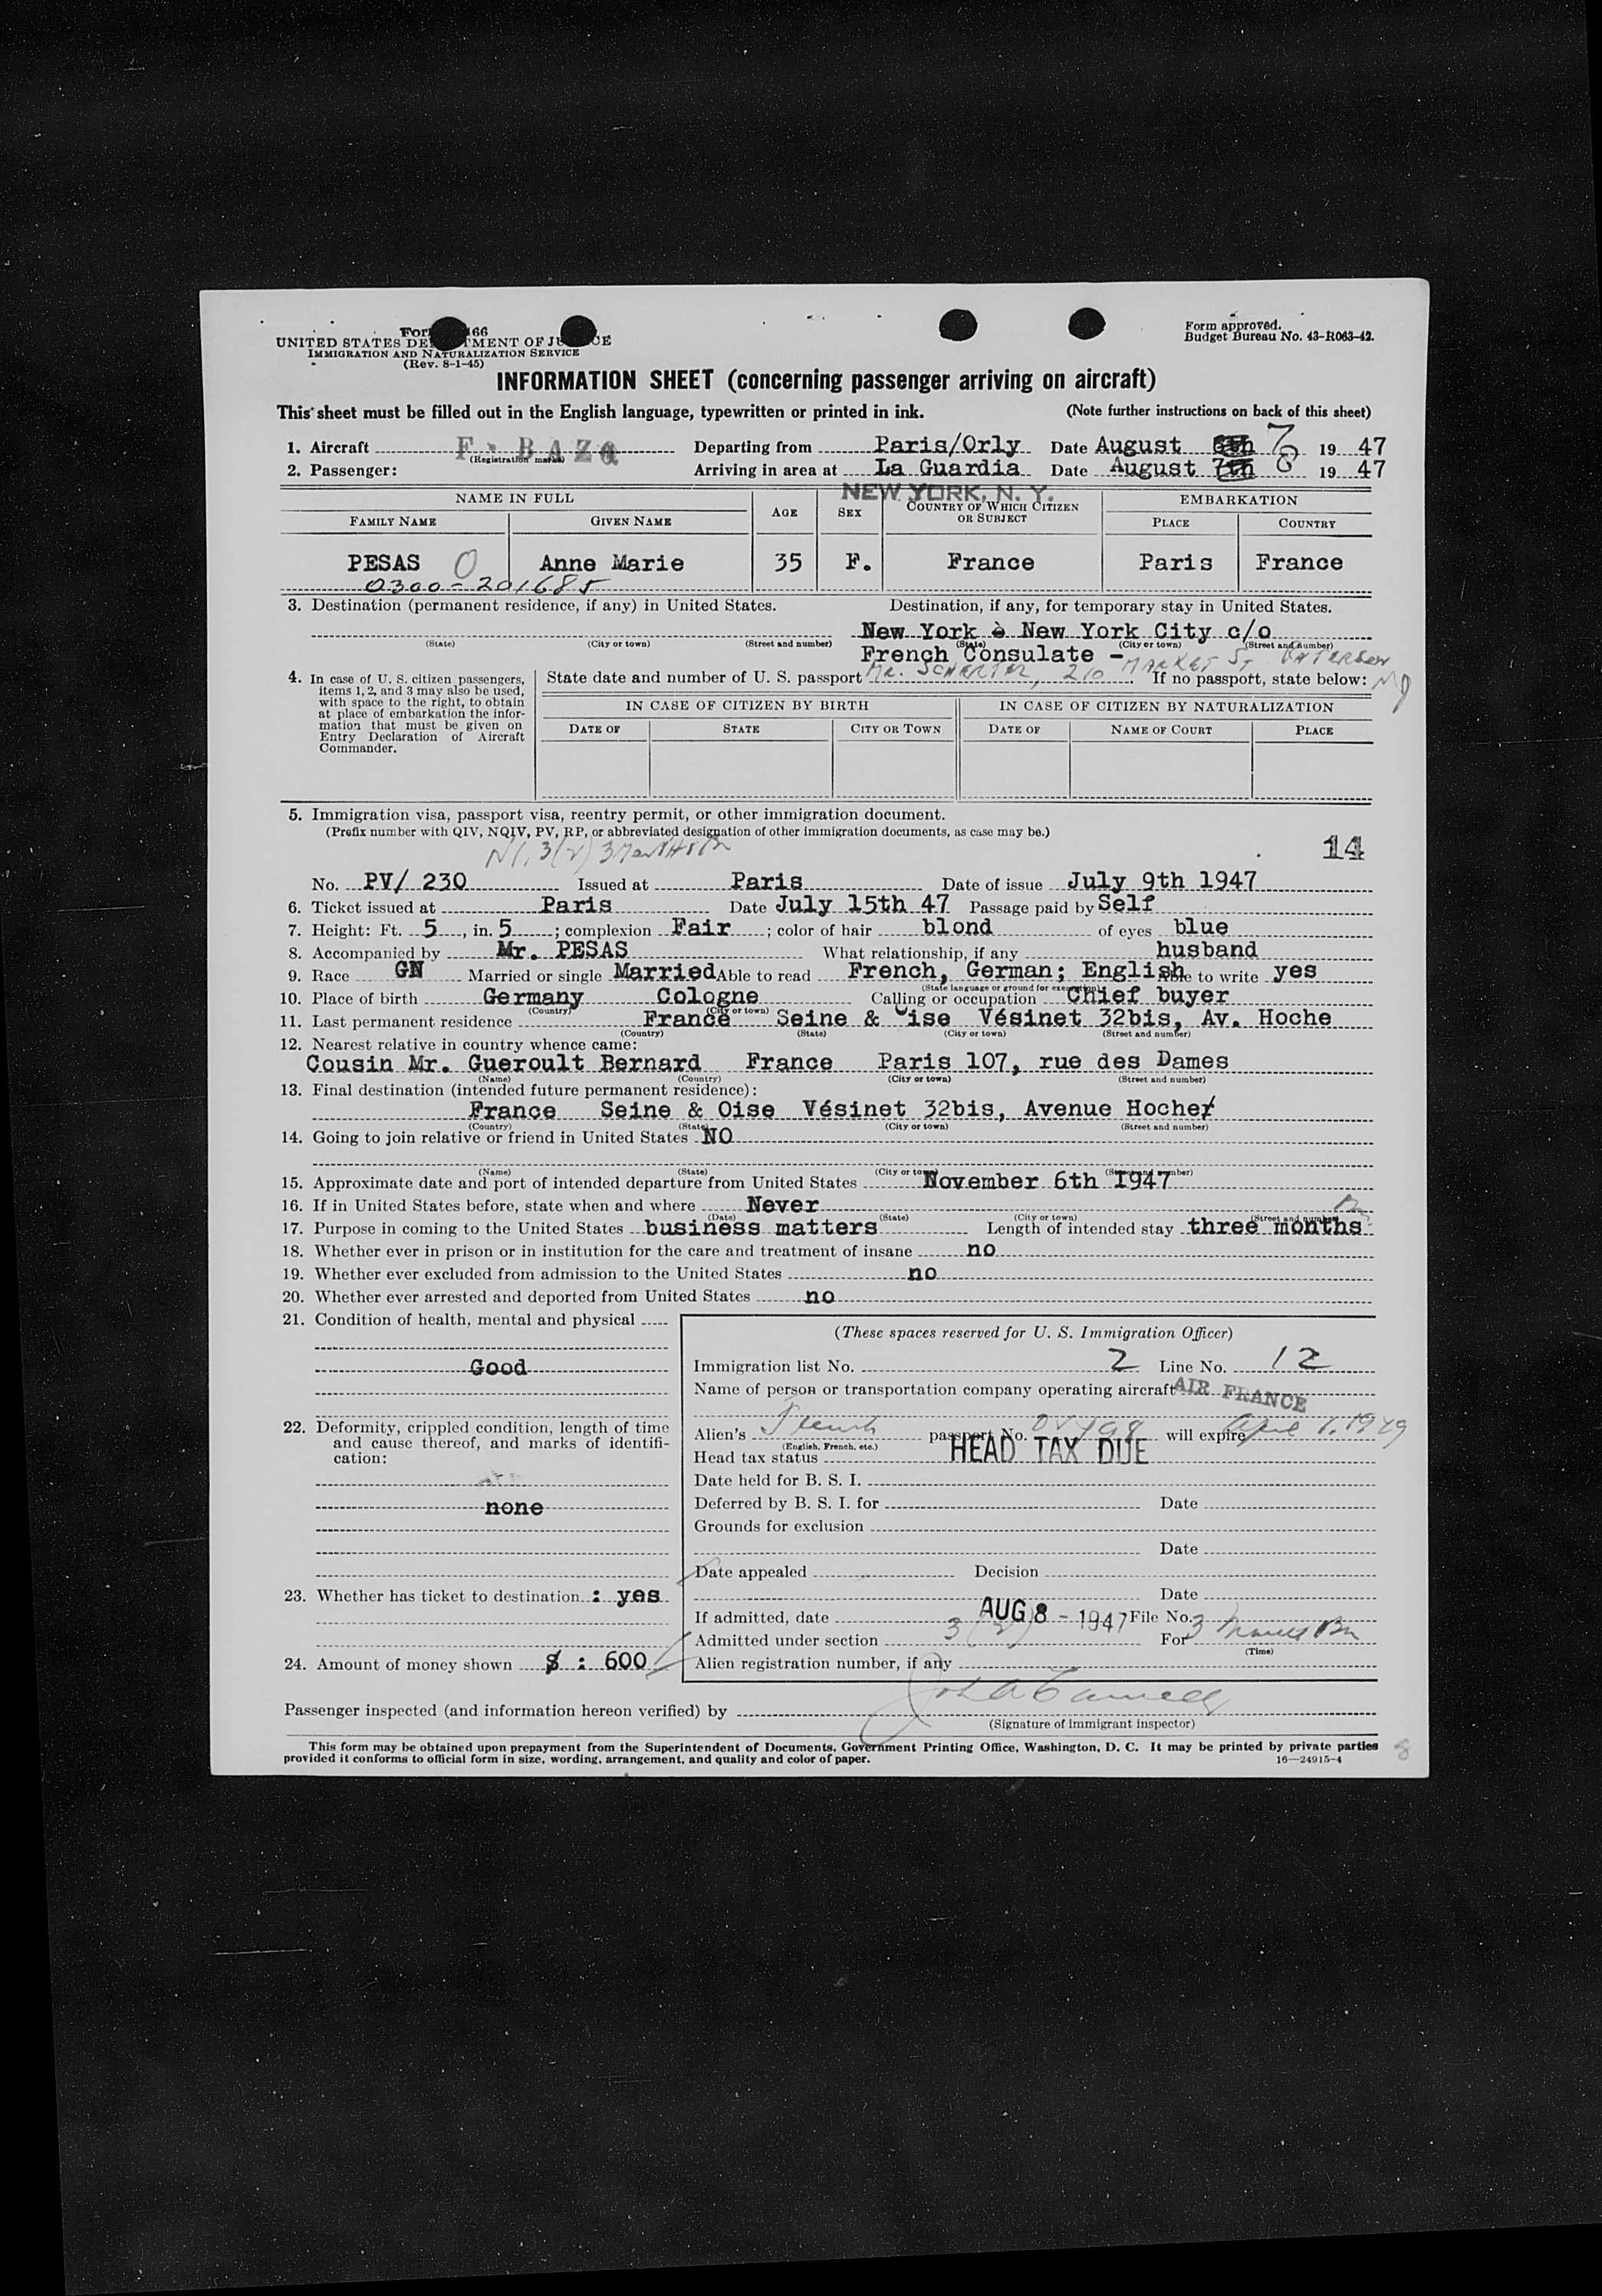 Form 466
UNITED STATES DEPARTMENT OF JUSTICE
IMMIGRATION AND NATURALIZATION SERVICE
(Rev. 8-1-45)
Form approved.
Budget Bureau No. 43-R063-42.
INFORMATION SHEET (concerning passenger arriving on aircraft)
This sheet must be filled out in the English language, typewritten or printed in ink. (Note further instructions on back of this sheet)
1. Aircraft F. BAZQ Departing from Paris/Orly Date August 6th 7 1947
(Registration marks)
2. Passenger: Arriving in area at La Guardia Date August 7th 8 1947
NEW YORK, N. Y.
NAME IN FULL AGE SEX COUNTRY OF WHICH CITIZEN OR SUBJECT EMBARKATION
FAMILY NAME GIVEN NAME PLACE COUNTRY
PESAS O Anne Marie 35 F. France Paris France
0300-201685
3. Destination (permanent residence, if any) in United States. Destination, if any, for temporary stay in United States.
New York è New York City c/o
(State) (City or town) (Street and number) (State) (City or town) (Street and number)
French Consulate -
4. In case of U. S. citizen passengers, items 1, 2, and 3 may also be used, with space to the right, to obtain at place of embarkation the information that must be given on Entry Declaration of Aircraft Commander.
State date and number of U. S. passport MR. 210 MARKET ST PATERSON NJ If no passport, state below:
IN CASE OF CITIZEN BY BIRTH IN CASE OF CITIZEN BY NATURALIZATION
DATE OF STATE CITY OR TOWN DATE OF NAME OF COURT PLACE
5. Immigration visa, passport visa, reentry permit, or other immigration document.
(Prefix number with QIV, NQIV, PV, RP, or abbreviated designation of other immigration documents, as case may be.)
3(2) 3 14
No. PV/ 230 Issued at Paris Date of issue July 9th 1947
6. Ticket issued at Paris Date July 15th 47 Passage paid by Self
7. Height: Ft. 5, in. 5; complexion Fair; color of hair blond of eyes blue
8. Accompanied by Mr. PESAS What relationship, if any husband
9. Race GN Married or single Married Able to read French, German; English Able to write yes
(State language or ground for exemption)
10. Place of birth Germany Cologne Calling or occupation Chief buyer
(Country) (City or town)
11. Last permanent residence France Seine & Oise Vésinet 32bis, Av. Hoche
(Country) (State) (City or town) (Street and number)
12. Nearest relative in country whence came:
Cousin Mr. Gueroult Bernard France Paris 107, rue des Dames
(Name) (Country) (City or town) (Street and number)
13. Final destination (intended future permanent residence):
France Seine & Oise Vésinet 32bis, Avenue Hoche
(Country) (State) (City or town) (Street and number)
14. Going to join relative or friend in United States NO
(Name) (State) (City or town) (Street and number)
15. Approximate date and port of intended departure from United States November 6th 1947
16. If in United States before, state when and where Never
(Date) (State) (City or town) (Street and number)
17. Purpose in coming to the United States business matters Length of intended stay three months
18. Whether ever in prison or in institution for the care and treatment of insane no
19. Whether ever excluded from admission to the United States no
20. Whether ever arrested and deported from United States no
21. Condition of health, mental and physical
Good
22. Deformity, crippled condition, length of time and cause thereof, and marks of identification:
none
23. Whether has ticket to destination : yes
24. Amount of money shown $ : 600
(These spaces reserved for U. S. Immigration Officer)
Immigration list No. 2 Line No. 12
Name of person or transportation company operating aircraft AIR FRANCE
Alien's French passport No. will expire April 1, 1949
(English, French, etc.)
Head tax status HEAD TAX DUE
Date held for B. S. I.
Deferred by B. S. I. for Date
Grounds for exclusion
Date
Date appealed Decision
Date
If admitted, date AUG 8 - 1947 File No.
Admitted under section 3 (2) For 3 months
(Time)
Alien registration number, if any
Passenger inspected (and information hereon verified) by
(Signature of immigrant inspector)
This form may be obtained upon prepayment from the Superintendent of Documents, Government Printing Office, Washington, D. C. It may be printed by private parties
provided it conforms to official form in size, wording, arrangement, and quality and color of paper. 16—24915-4
8